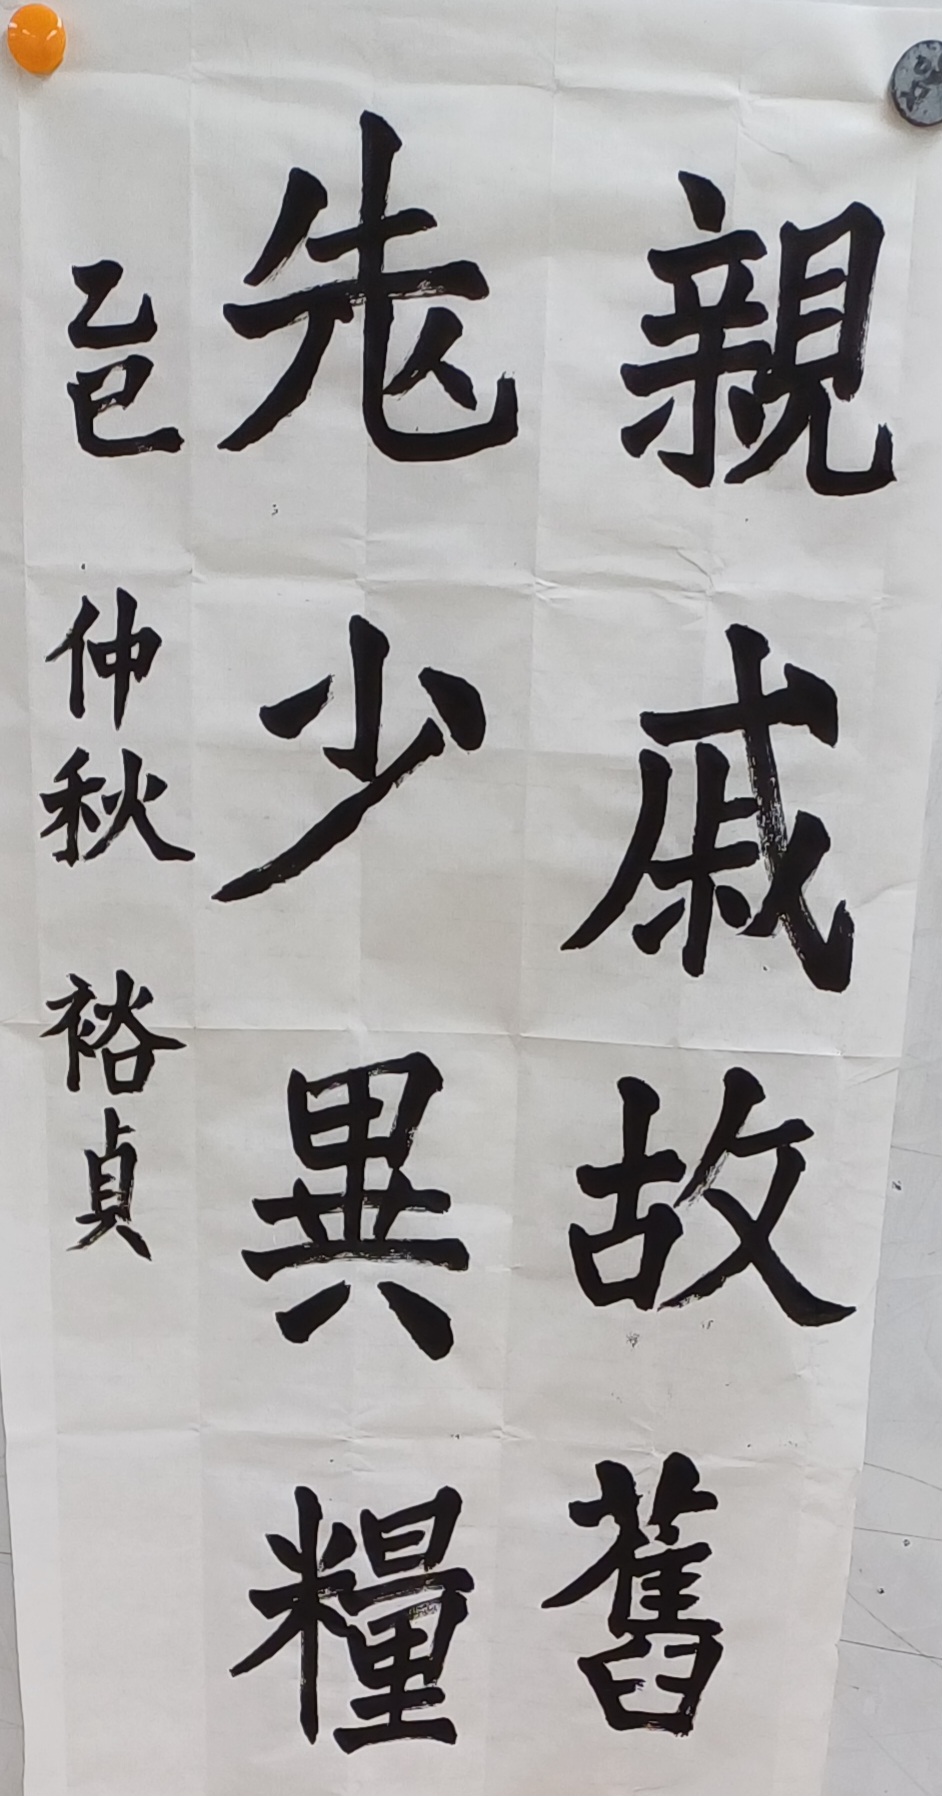 親戚故舊
老少異糧
乙巳 仲秋 裕貞